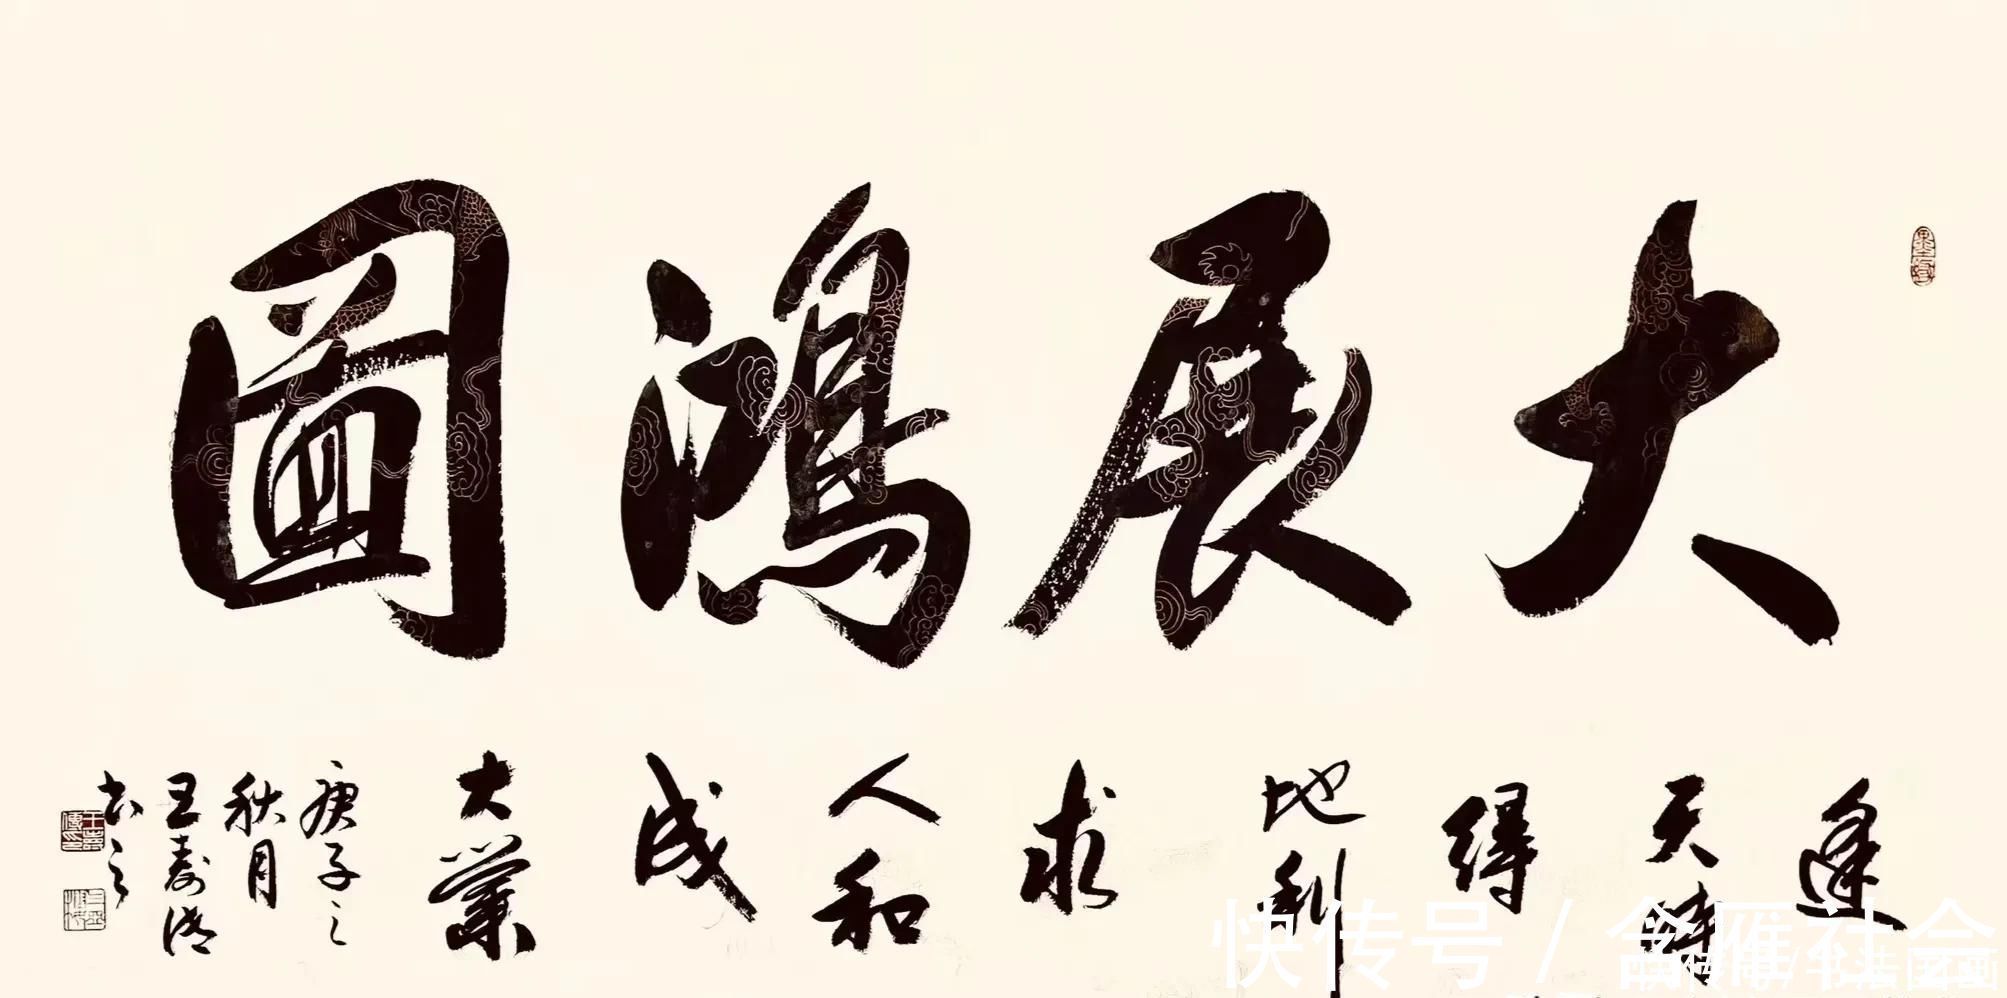 大展鴻圖
逢
天時
得
地利
求
人和
成
大業
庚子之
秋月
王壽
书之
快传号 / 含雁社会